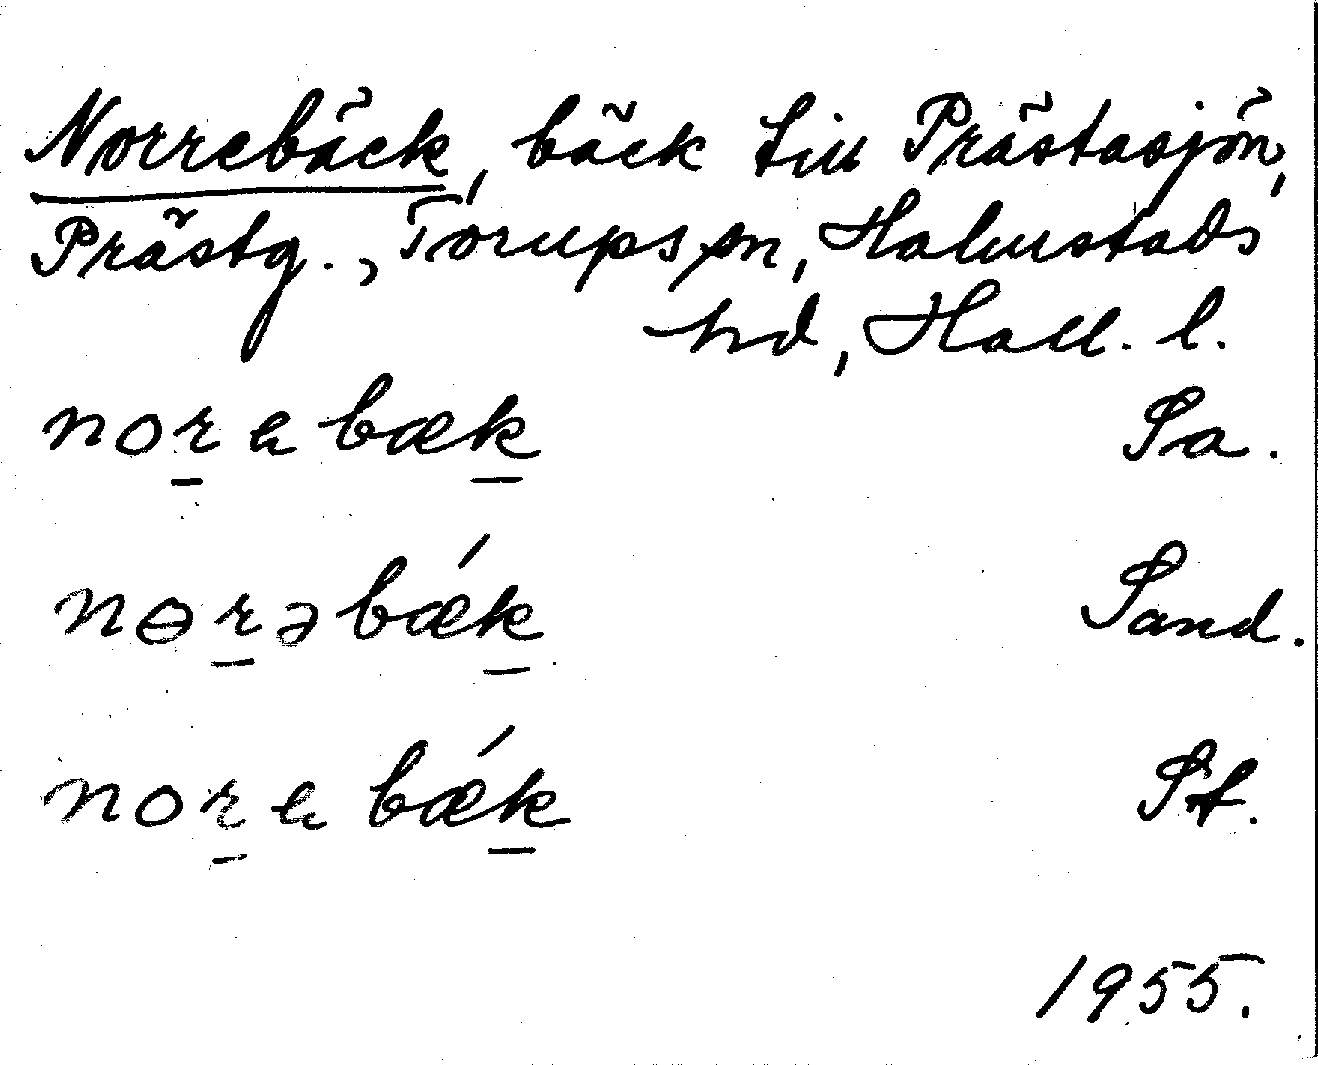 Norrebäck, bäck till Prästasjön,
Prästg., Torups sn, Halmstads
hd, Hall. l.
norabæk Sa.
nɵrəbǽk Sand.
norabǽk St.
1955.